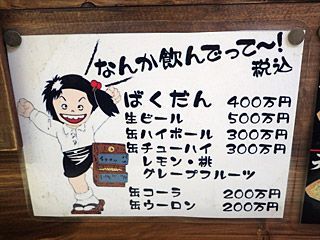 なんか飲んでって〜!
税込
ばくだん 400万円
生ビール 500万円
缶ハイボール 300万円
缶チューハイ 300万円
レモン・桃
グレープフルーツ
缶コーラ 200万円
缶ウーロン 200万円